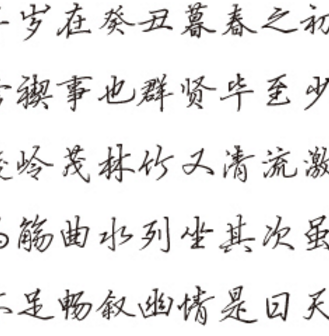 岁在癸丑暮春之初
禊事也群贤毕至少
岭茂林竹又清流激
觞曲水列坐其次虽
足畅叙幽情是日天